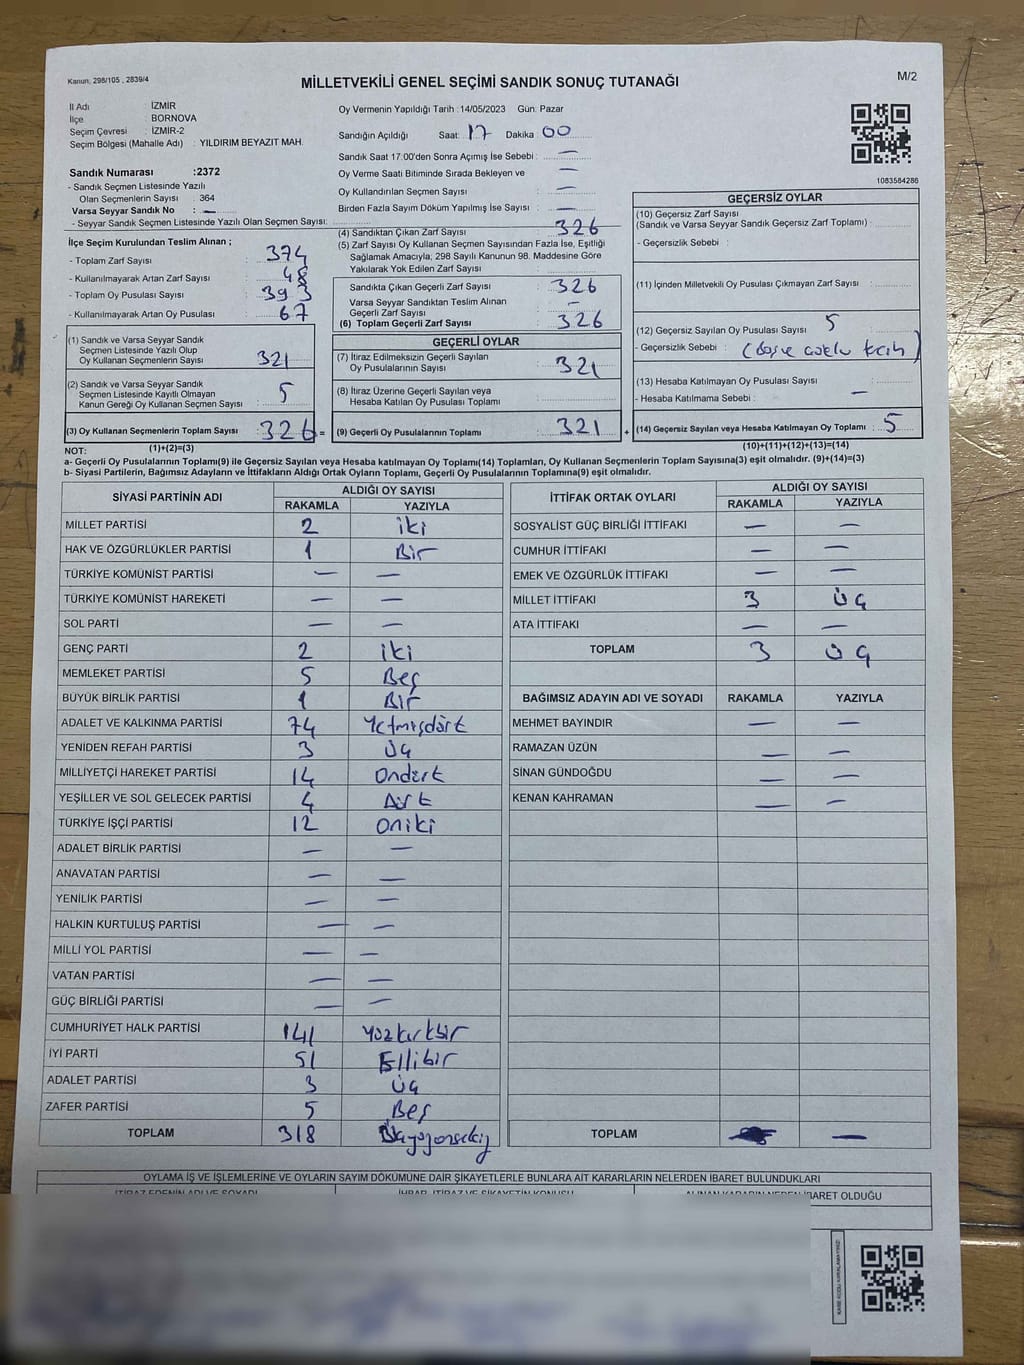 Kanun, 298/105 , 2839/4
MİLLETVEKİLİ GENEL SEÇİMİ SANDIK SONUÇ TUTANAĞI
M/2
İl Adı : İZMİR
İlçe : BORNOVA
Seçim Çevresi : İZMİR-2
Seçim Bölgesi (Mahalle Adı) : YILDIRIM BEYAZIT MAH.
Oy Vermenin Yapıldığı Tarih :14/05/2023 Gün: Pazar
Sandığın Açıldığı Saat: 17 Dakika 00
Sandık Saat 17:00'den Sonra Açımış İse Sebebi : —
Oy Verme Saati Bitiminde Sırada Bekleyen ve
Oy Kullandırılan Seçmen Sayısı : —
Birden Fazla Sayım Döküm Yapılmış İse Sayısı : —
1083584286
Sandık Numarası :2372
- Sandık Seçmen Listesinde Yazılı
Olan Seçmenlerin Sayısı : 364
Varsa Seyyar Sandık No : —
- Seyyar Sandık Seçmen Listesinde Yazılı Olan Seçmen Sayısı:
İlçe Seçim Kurulundan Teslim Alınan ;
- Toplam Zarf Sayısı : 374
- Kullanılmayarak Artan Zarf Sayısı : 48
- Toplam Oy Pusulası Sayısı : 393
- Kullanılmayarak Artan Oy Pusulası : 67
(1) Sandık ve Varsa Seyyar Sandık
Seçmen Listesinde Yazılı Olup
Oy Kullanan Seçmenlerin Sayısı : 321
(2) Sandık ve Varsa Seyyar Sandık
Seçmen Listesinde Kayıtlı Olmayan
Kanun Gereği Oy Kullanan Seçmen Sayısı : 5
(3) Oy Kullanan Seçmenlerin Toplam Sayısı : 326 =
(4) Sandıktan Çıkan Zarf Sayısı : 326
(5) Zarf Sayısı Oy Kullanan Seçmen Sayısından Fazla İse, Eşitliği
Sağlamak Amacıyla; 298 Sayılı Kanunun 98. Maddesine Göre
Yakılarak Yok Edilen Zarf Sayısı :
Sandıkta Çıkan Geçerli Zarf Sayısı : 326
Varsa Seyyar Sandıktan Teslim Alınan
Geçerli Zarf Sayısı : —
(6) Toplam Geçerli Zarf Sayısı : 326
GEÇERLİ OYLAR
(7) İtiraz Edilmeksizin Geçerli Sayılan
Oy Pusulalarının Sayısı : 321
(8) İtiraz Üzerine Geçerli Sayılan veya
Hesaba Katılan Oy Pusulası Toplamı :
(9) Geçerli Oy Pusulalarının Toplamı : 321 +
GEÇERSİZ OYLAR
(10) Geçersiz Zarf Sayısı
(Sandık ve Varsa Seyyar Sandık Geçersiz Zarf Toplamı) :
- Geçersizlik Sebebi :
(11) İçinden Milletvekili Oy Pusulası Çıkmayan Zarf Sayısı :
(12) Geçersiz Sayılan Oy Pusulası Sayısı : 5
- Geçersizlik Sebebi :
(13) Hesaba Katılmayan Oy Pusulası Sayısı :
- Hesaba Katılmama Sebebi : —
(14) Geçersiz Sayılan veya Hesaba Katılmayan Oy Toplamı : 5
NOT: (1)+(2)=(3)
(10)+(11)+(12)+(13)=(14)
a- Geçerli Oy Pusulalarının Toplamı(9) ile Geçersiz Sayılan veya Hesaba katılmayan Oy Toplamı(14) Toplamları, Oy Kullanan Seçmenlerin Toplam Sayısına(3) eşit olmalıdır. (9)+(14)=(3)
b- Siyasi Partilerin, Bağımsız Adayların ve İttifakların Aldığı Oyların Toplamı, Geçerli Oy Pusulalarının Toplamına(9) eşit olmalıdır.
SİYASİ PARTİNİN ADI ALDIĞI OY SAYISI
RAKAMLA YAZIYLA
MİLLET PARTİSİ 2 iki
HAK VE ÖZGÜRLÜKLER PARTİSİ 1 Bir
TÜRKİYE KOMÜNİST PARTİSİ — —
TÜRKİYE KOMÜNİST HAREKETİ — —
SOL PARTİ — —
GENÇ PARTİ 2 iki
MEMLEKET PARTİSİ 5 Beş
BÜYÜK BİRLİK PARTİSİ 1 Bir
ADALET VE KALKINMA PARTİSİ 74 Yetmişdört
YENİDEN REFAH PARTİSİ 3 üç
MİLLİYETÇİ HAREKET PARTİSİ 14 Ondört
YEŞİLLER VE SOL GELECEK PARTİSİ 4 Dört
TÜRKİYE İŞÇİ PARTİSİ 12 oniki
ADALET BİRLİK PARTİSİ — —
ANAVATAN PARTİSİ — —
YENİLİK PARTİSİ — —
HALKIN KURTULUŞ PARTİSİ — —
MİLLİ YOL PARTİSİ — —
VATAN PARTİSİ — —
GÜÇ BİRLİĞİ PARTİSİ — —
CUMHURİYET HALK PARTİSİ 141 yüzkırkbir
İYİ PARTİ 51 Ellibir
ADALET PARTİSİ 3 üç
ZAFER PARTİSİ 5 Beş
TOPLAM 318
İTTİFAK ORTAK OYLARI ALDIĞI OY SAYISI
RAKAMLA YAZIYLA
SOSYALİST GÜÇ BİRLİĞİ İTTİFAKI — —
CUMHUR İTTİFAKI — —
EMEK VE ÖZGÜRLÜK İTTİFAKI — —
MİLLET İTTİFAKI 3 üç
ATA İTTİFAKI — —
TOPLAM 3 üç
BAĞIMSIZ ADAYIN ADI VE SOYADI RAKAMLA YAZIYLA
MEHMET BAYINDIR — —
RAMAZAN ÜZÜN — —
SİNAN GÜNDOĞDU — —
KENAN KAHRAMAN — —
TOPLAM —
OYLAMA İŞ VE İŞLEMLERİNE VE OYLARIN SAYIM DÖKÜMÜNE DAİR ŞİKAYETLERLE BUNLARA AİT KARARLARIN NELERDEN İBARET BULUNDUKLARI
İTİRAZ EDENİN ADI VE SOYADI İHBAR, İTİRAZ VE ŞİKAYETİN KONUSU ALINAN KARARIN NEDEN İBARET OLDUĞU